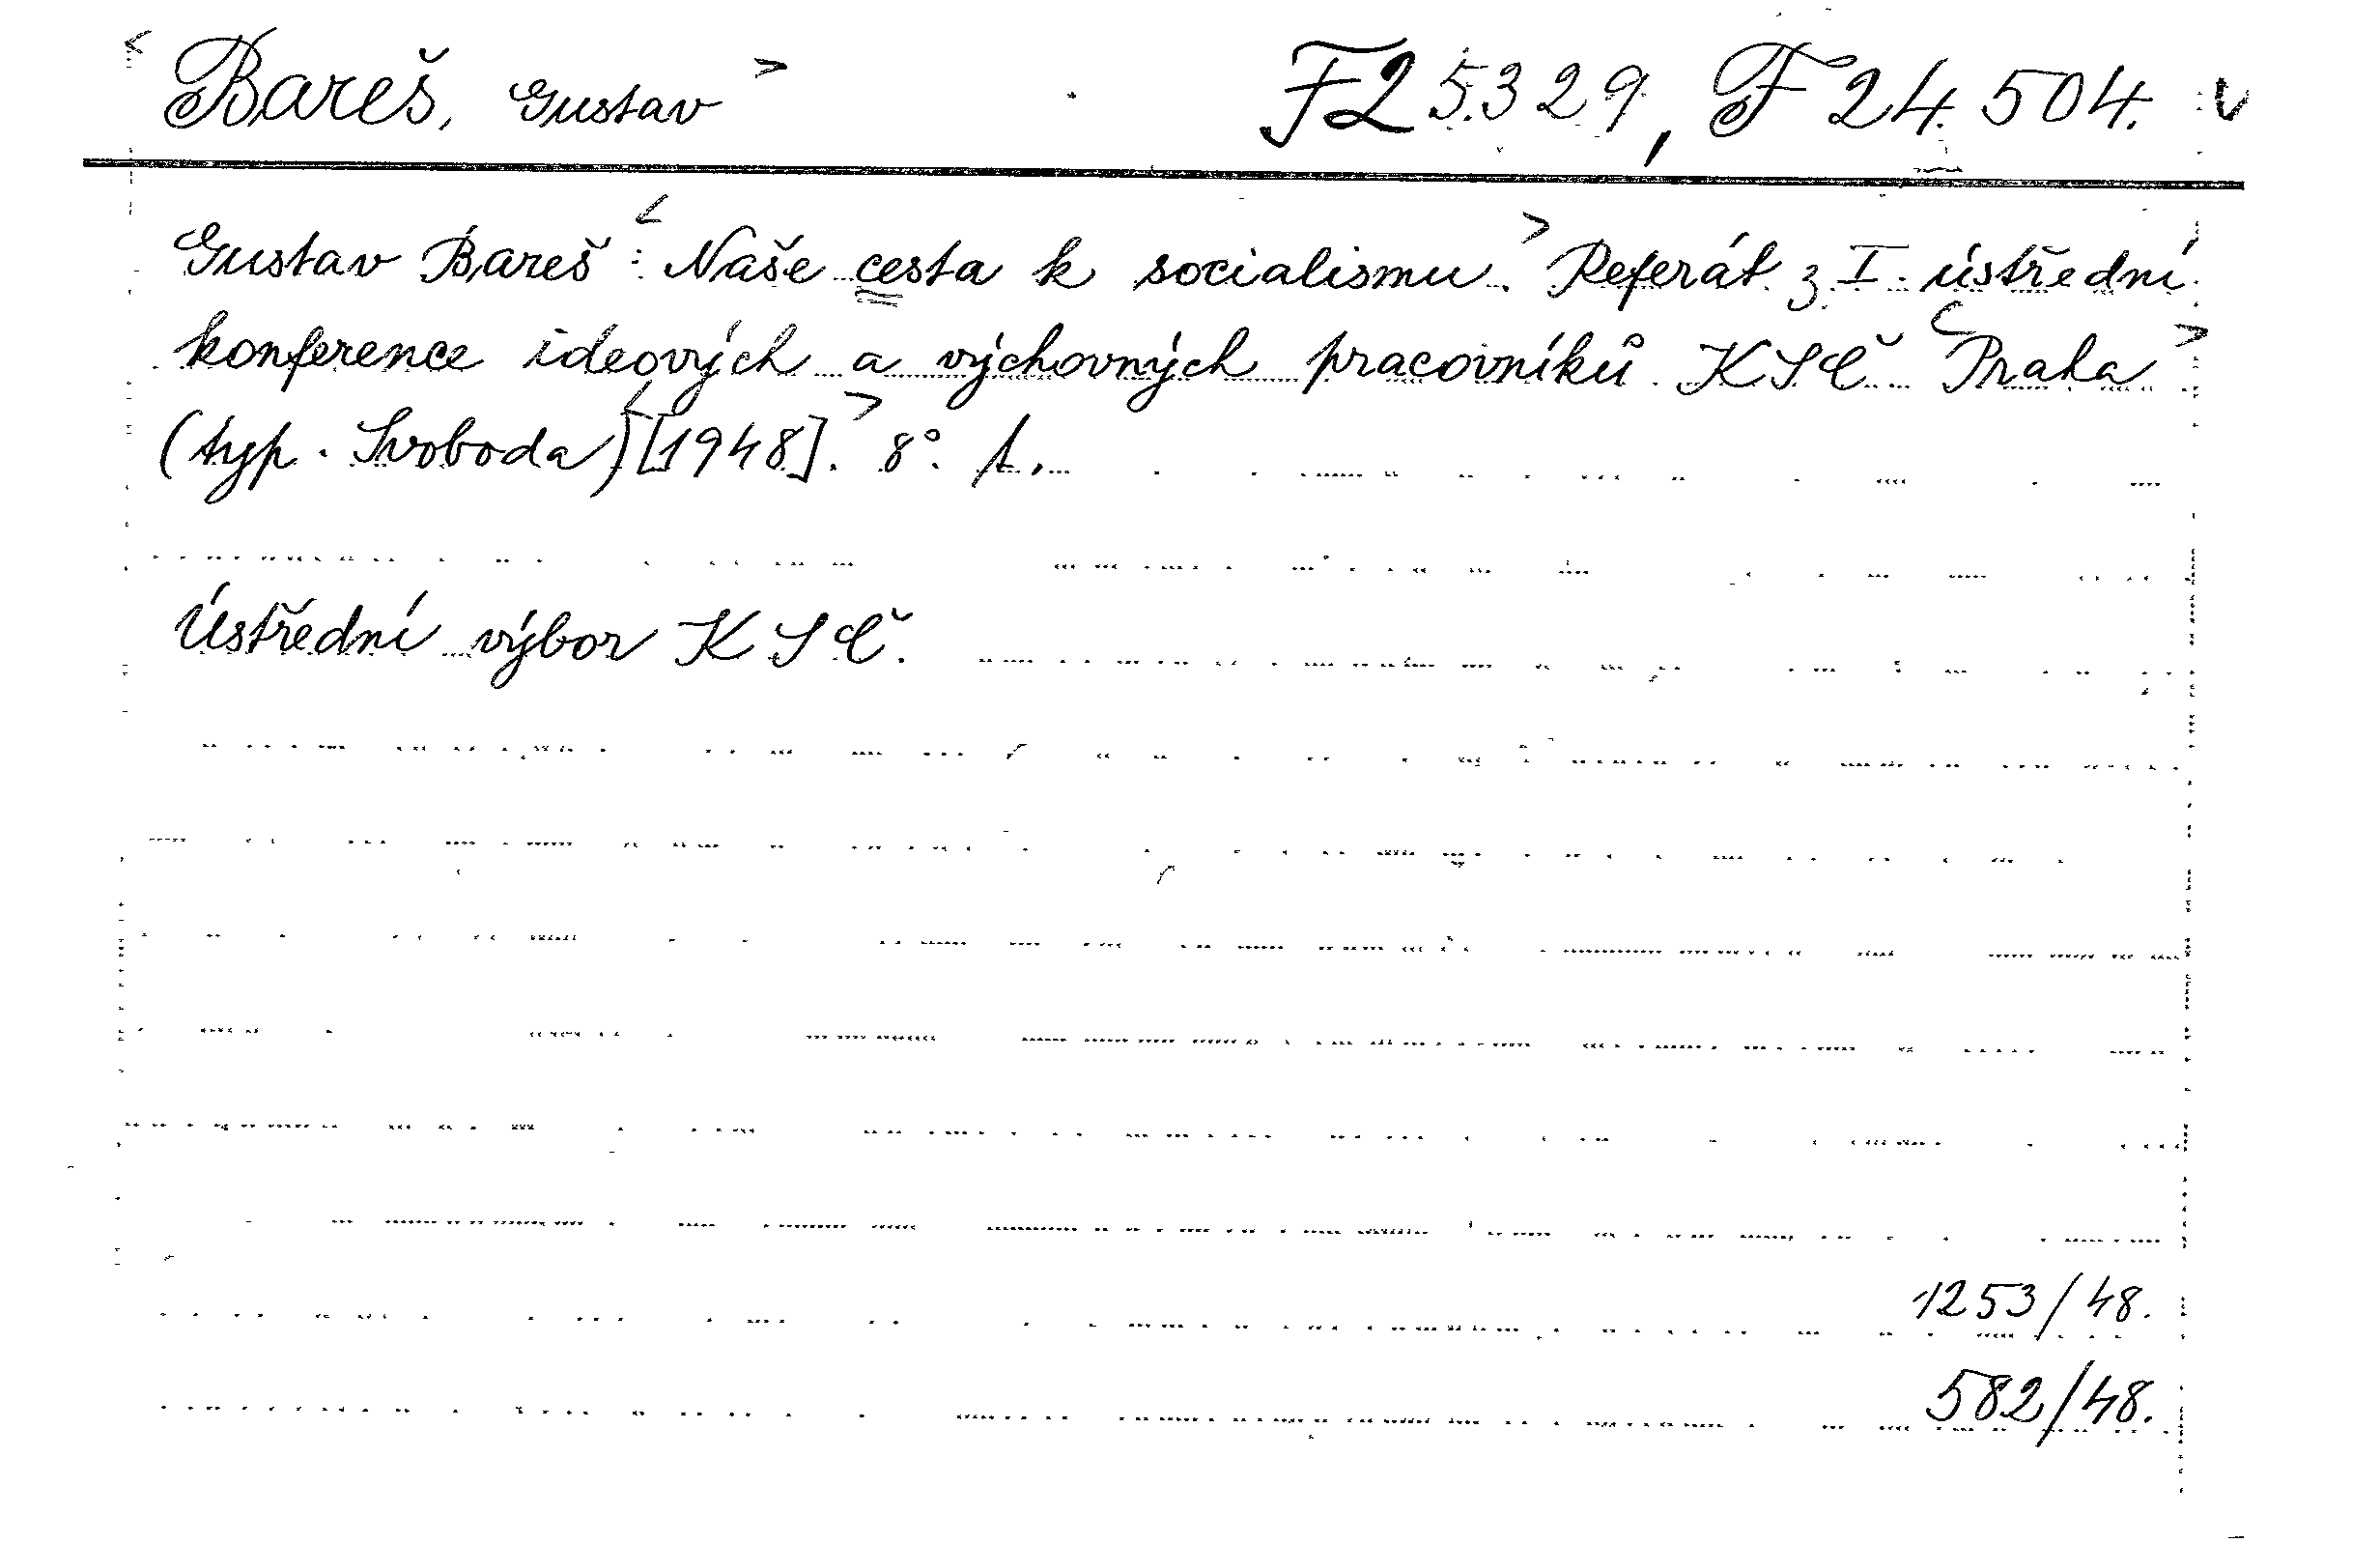 < Bareš, Gustav > F25.329, F 24.504. v
Gustav Bareš: < Naše cesta k socialismu. > Referát z I. ústřední
konference ideových a výchovných pracovníků KSČ < Praha >
(typ. Svoboda) < [1948]. > 8°.
Ústřední výbor KSČ.
1253/48.
582/48.